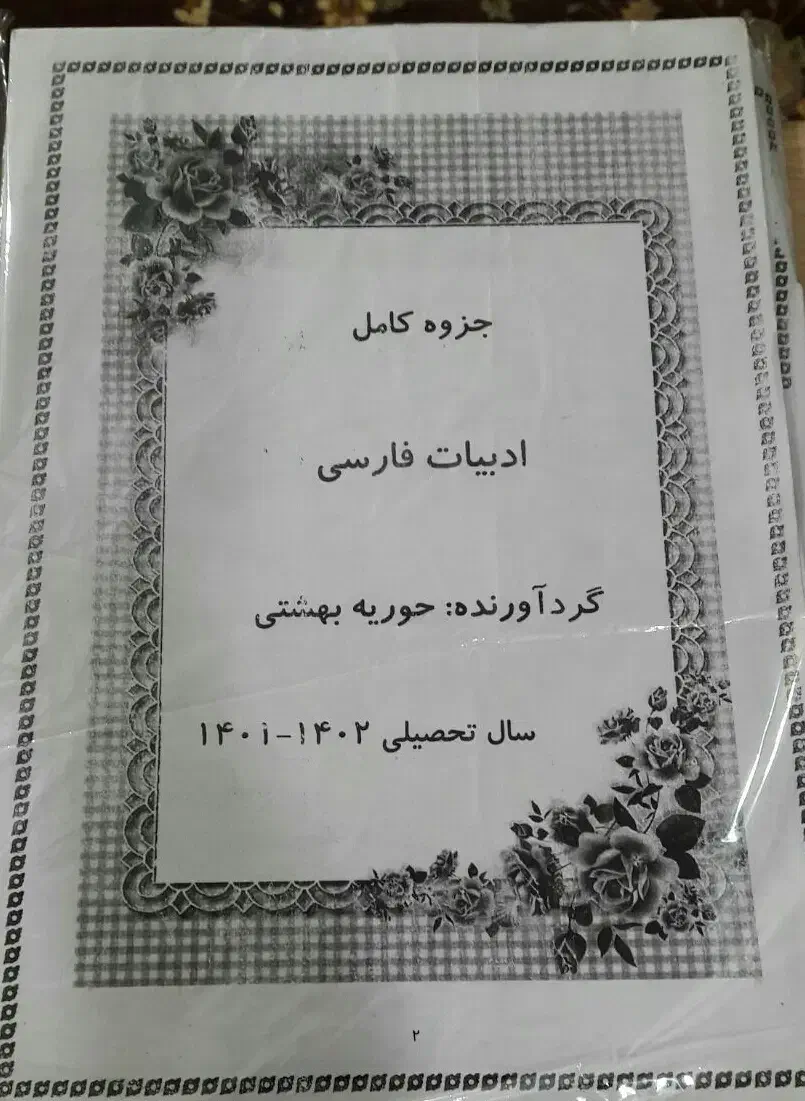 جزوه کامل
ادبیات فارسی
گردآورنده: حوریه بهشتی
سال تحصیلی ۱۴۰۲-۱۴۰۱
۲